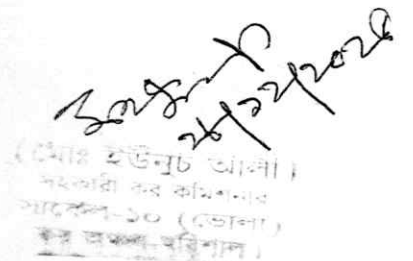 (মোঃ ইউনুচ আলী)
সহকারী কর কমিশনার
সার্কেল-১০ (ভোলা)
কর অঞ্চল-বরিশাল।